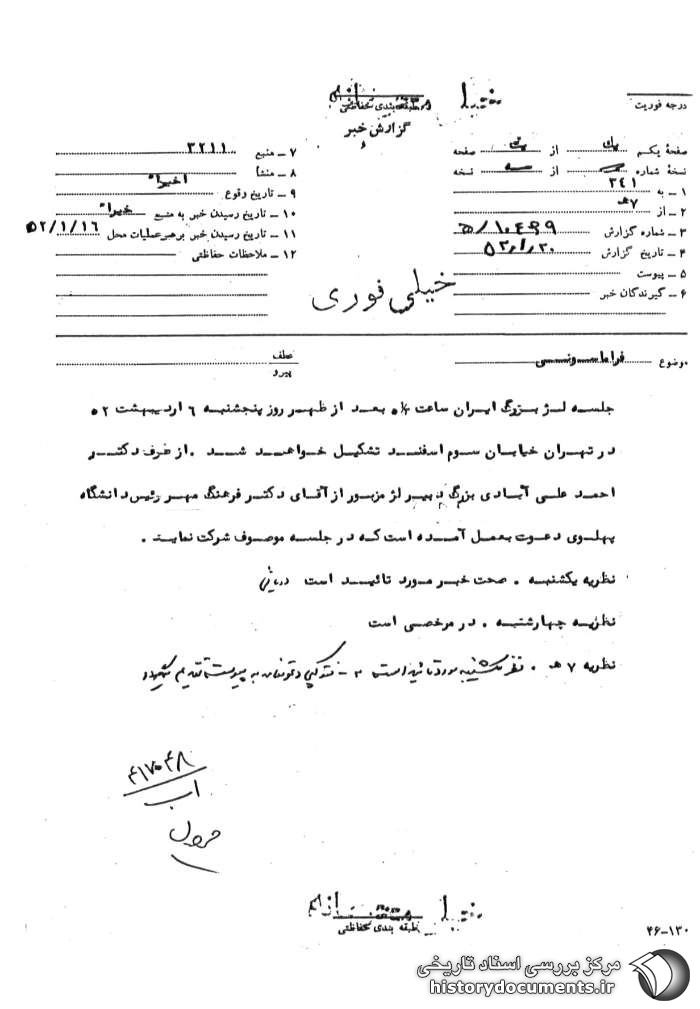 خیلی محرمانه
طبقه‌بندی حفاظتی
گزارش خبر
درجه فوریت
صفحهٔ یکم از صفحه
نسخهٔ شماره از سه نسخه
۱ ـ به ۳۴۱
۲ ـ از ۷ﻫ
۳ ـ شماره گزارش ۱۰۴۹۹/ﻫ
۴ ـ تاریخ گزارش ۵۲،۱،۲۰
۵ ـ پیوست
۶ ـ گیرندگان خبر
۷ ـ منبع ۳۲۱۱
۸ ـ منشأ اخیراً
۹ ـ تاریخ وقوع
۱۰ ـ تاریخ رسیدن خبر به منبع
۱۱ ـ تاریخ رسیدن خبر برهبر عملیات محل ۵۲/۱/۱۶
۱۲ ـ ملاحظات حفاظتی
خیلی فوری
موضوع فراماسونسی
عطف
پیرو
جلسه لژ بزرگ ایران ساعت بعد از ظهر روز پنجشنبه ۶ اردیبهشت ۵۲
در تهران خیابان سوم اسفند تشکیل خواهد شد . از طرف دکتر
احمد علی آبادی بزرگ دبیر لژ مزبور از آقای دکتر فرهنگ مهر رئیس دانشگاه
پهلوی دعوت بعمل آمده است که در جلسه موصوف شرکت نمایند .
نظریه یکشنبه . صحت خبر مورد تائید است
نظریه چهارشنبه . در مرخصی است
نظریه ۷ ﻫ . نظر یکشنبه مورد تائید است ۲ـ به پیوست تقدیم میگردد
۴۱۷۰۴۸
خیلی محرمانه
طبقه‌بندی حفاظتی
۴۶-۱۳۰
مرکز بررسی اسناد تاریخی
historydocuments.ir